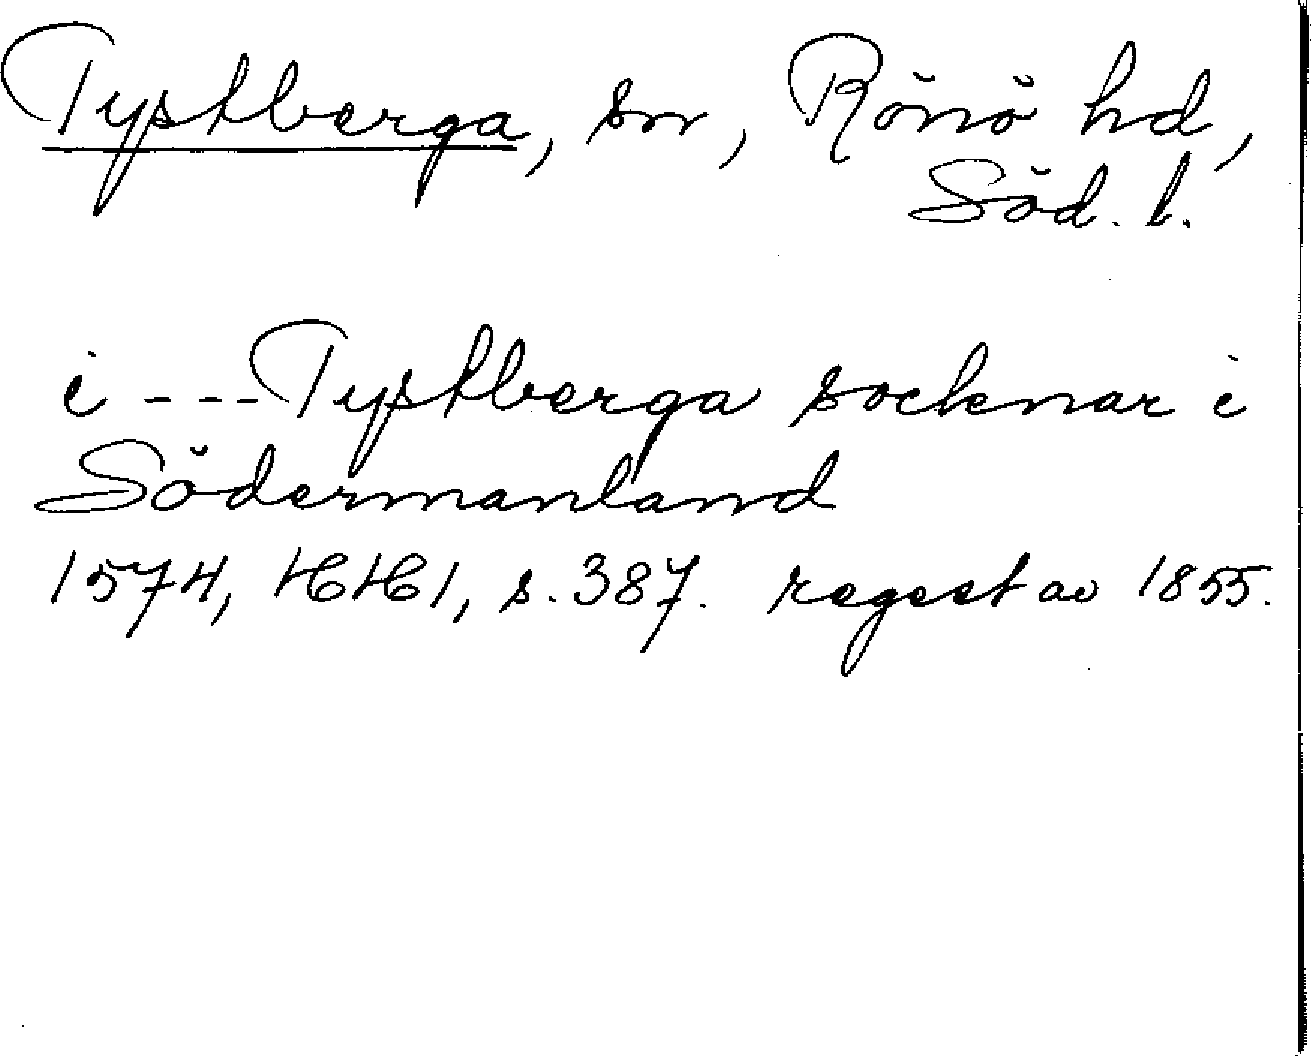 Tystberga, sn, Rönö hd,
Söd. l.
i --- Tystberga socknar i
Södermanland
1574, HH1, s. 387. regest av 1855.